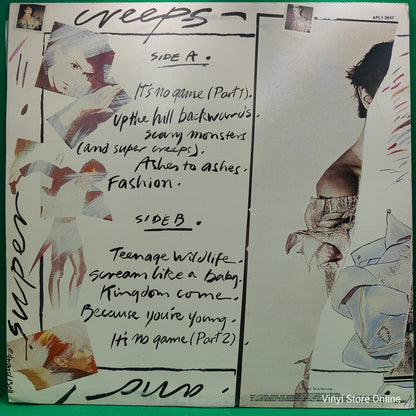 creeps
APL1 3647
SIDE A.
It's no game (Part 1).
Up the hill backwards
scary monsters
(and super creeps).
Ashes to ashes.
Fashion.
SIDE B.
Teenage Wildlife.
scream like a baby.
Kingdom come.
Because you're young.
It's no game (Part 2).
super
and
Vinyl Store Online